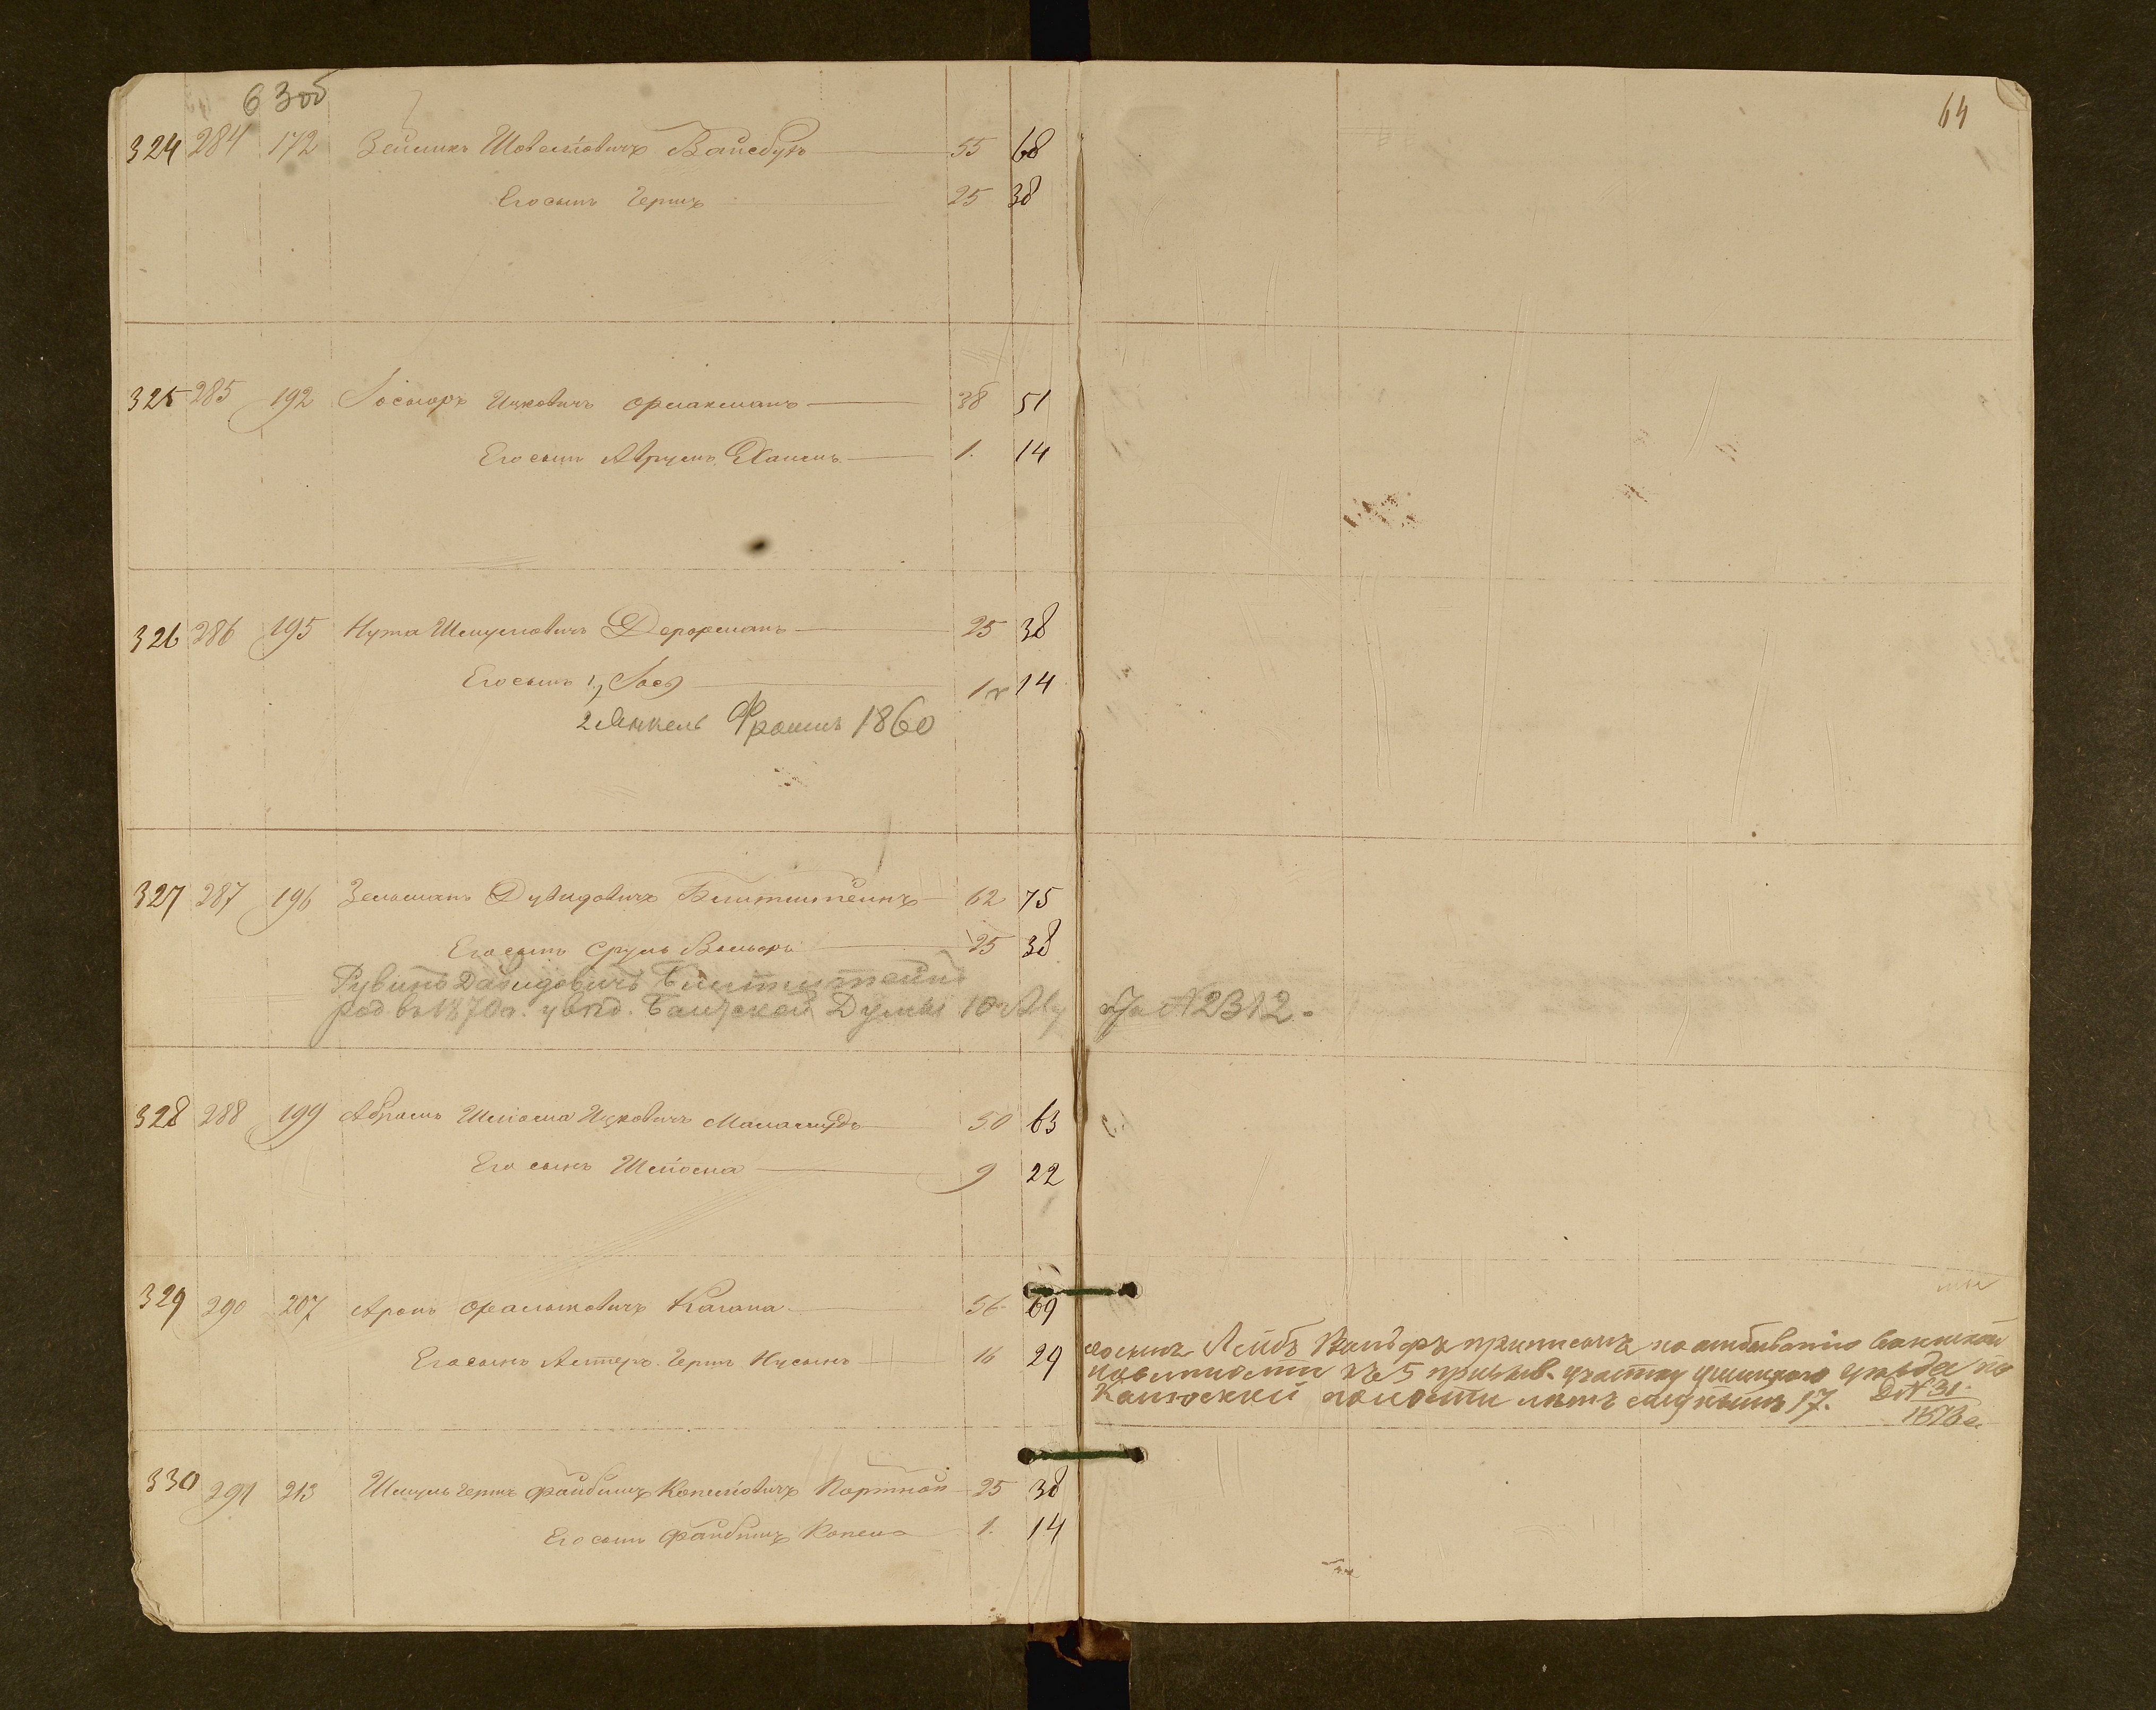 63об
64
324 284 172 Зейликъ Шовелiовичъ Вайсбухъ 55 68
Его сынъ Гершъ 25 38
325 285 192 Іосифъ Ицковичъ Фрахтманъ 38 51
Его сынъ Аврумъ Хаимъ 1. 14
326 286 195 Нута Шмулiовичъ Дорфманъ 25 38
Его сынъ 1, Іось 1 14
2 Янкель Фроимъ 1860
327 287 196 Зельманъ Дувидовичъ Битштейнъ 62 75
Его сынъ Сруль Вольфъ 25 38
Рувинъ Давидовичъ Битштейнъ
род въ 1870 г. увѣд. Думы 10 За N 2312.
328 288 199 Абрамъ Шлiома Ицковичъ Маламудъ 50 63
Его сынъ Шлiома 9 22
329 290 207 Аронъ Фальковичъ Кагана 56 69
Его сынъ Алтеръ Гершъ Нусынъ 16 29
Лейбъ Вольфъ приписанъ по отбыванiю воинской
повинности къ 5 призыв. участку уѣзда по
волости 17. Д N 31
330 291 213 Шмуль Гершъ Файбишъ Копелiовичъ Портной 25 38
Его сынъ Файбишъ Копель 1. 14